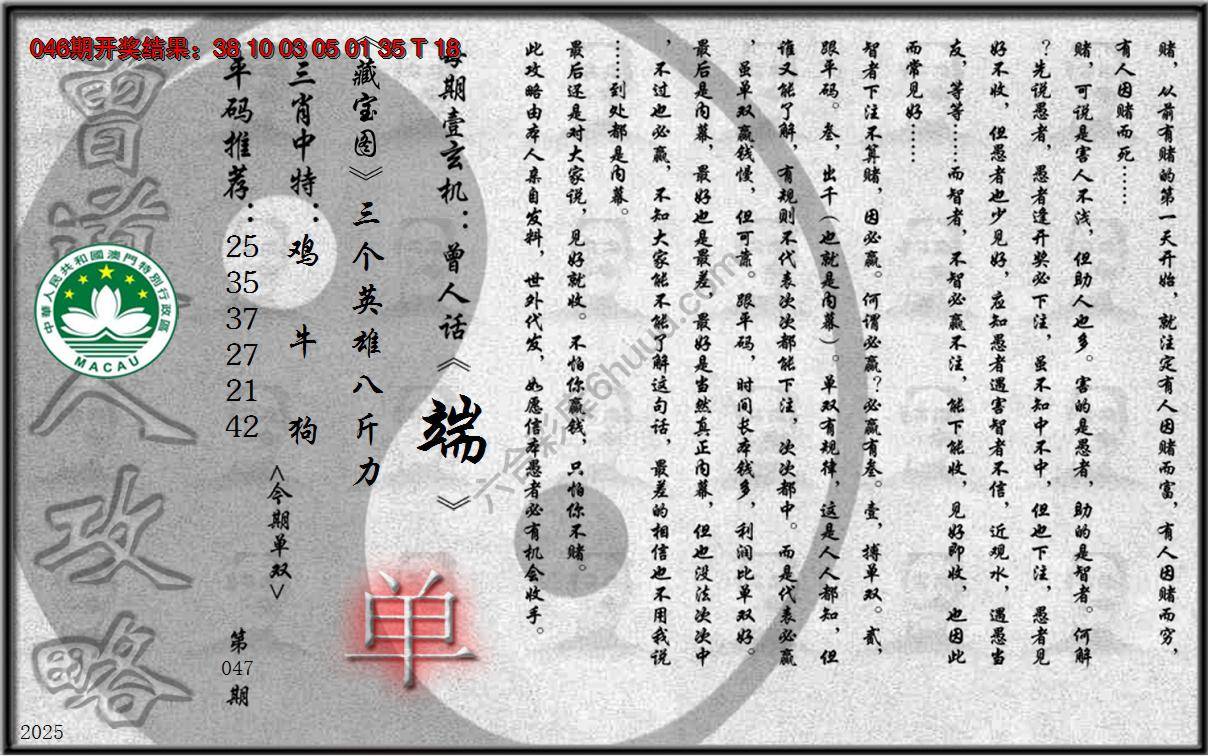 046期开奖结果：38 10 03 05 01 35 T 18
赌，从前有赌的第一天开始，就注定有人因赌而富，有人因赌而穷，
有人因赌而死……
赌，可说是害人不浅，但助人也多。害的是愚者，助的是智者。何解
？先说愚者，愚者逢开奖必下注，虽不知中不中，但也下注，愚者见
好不收，但愚者也少见好，应知愚者遇害智者不信，近观水，遇愚当
友，等等……而智者，不智必赢不注，能下能收，见好即收，也因此
而常见好……
智者下注不算赌，因必赢。何谓必赢？必赢有叁。壹，搏单双。贰，
跟平码。叁，出千（也就是内幕）。单双有规律，这是人人都知，但
谁又能了解，有规则不代表次次都能下注，次次都中。而是代表必赢
，虽单双赢钱慢，但可靠。跟平码，时间长本钱多，利润比单双好。
最后是内幕，最好也是最差，最好是当然真正内幕，但也没法次次中
，不过也必赢，不知大家能不能了解这句话，最差的相信也不用我说
……到处都是内幕。
最后还是对大家说，见好就收。不怕你赢钱，只怕你不赌。
此攻略由本人亲自发料，世外代发，如愿信本愚者必有机会收手。
每期壹玄机：曾人话《端》
《藏宝图》三个英雄八斤力
单
三肖中特：鸡 牛 狗
<今期单双>
平码推荐：
25
35
37
27
21
42
第
047
期
曾道人攻略
中華人民共和國澳門特別行政區
MACAU
2025